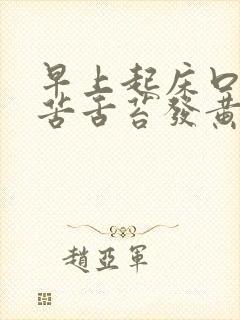 早上起床口
苦舌苔發黃
趙亞軍